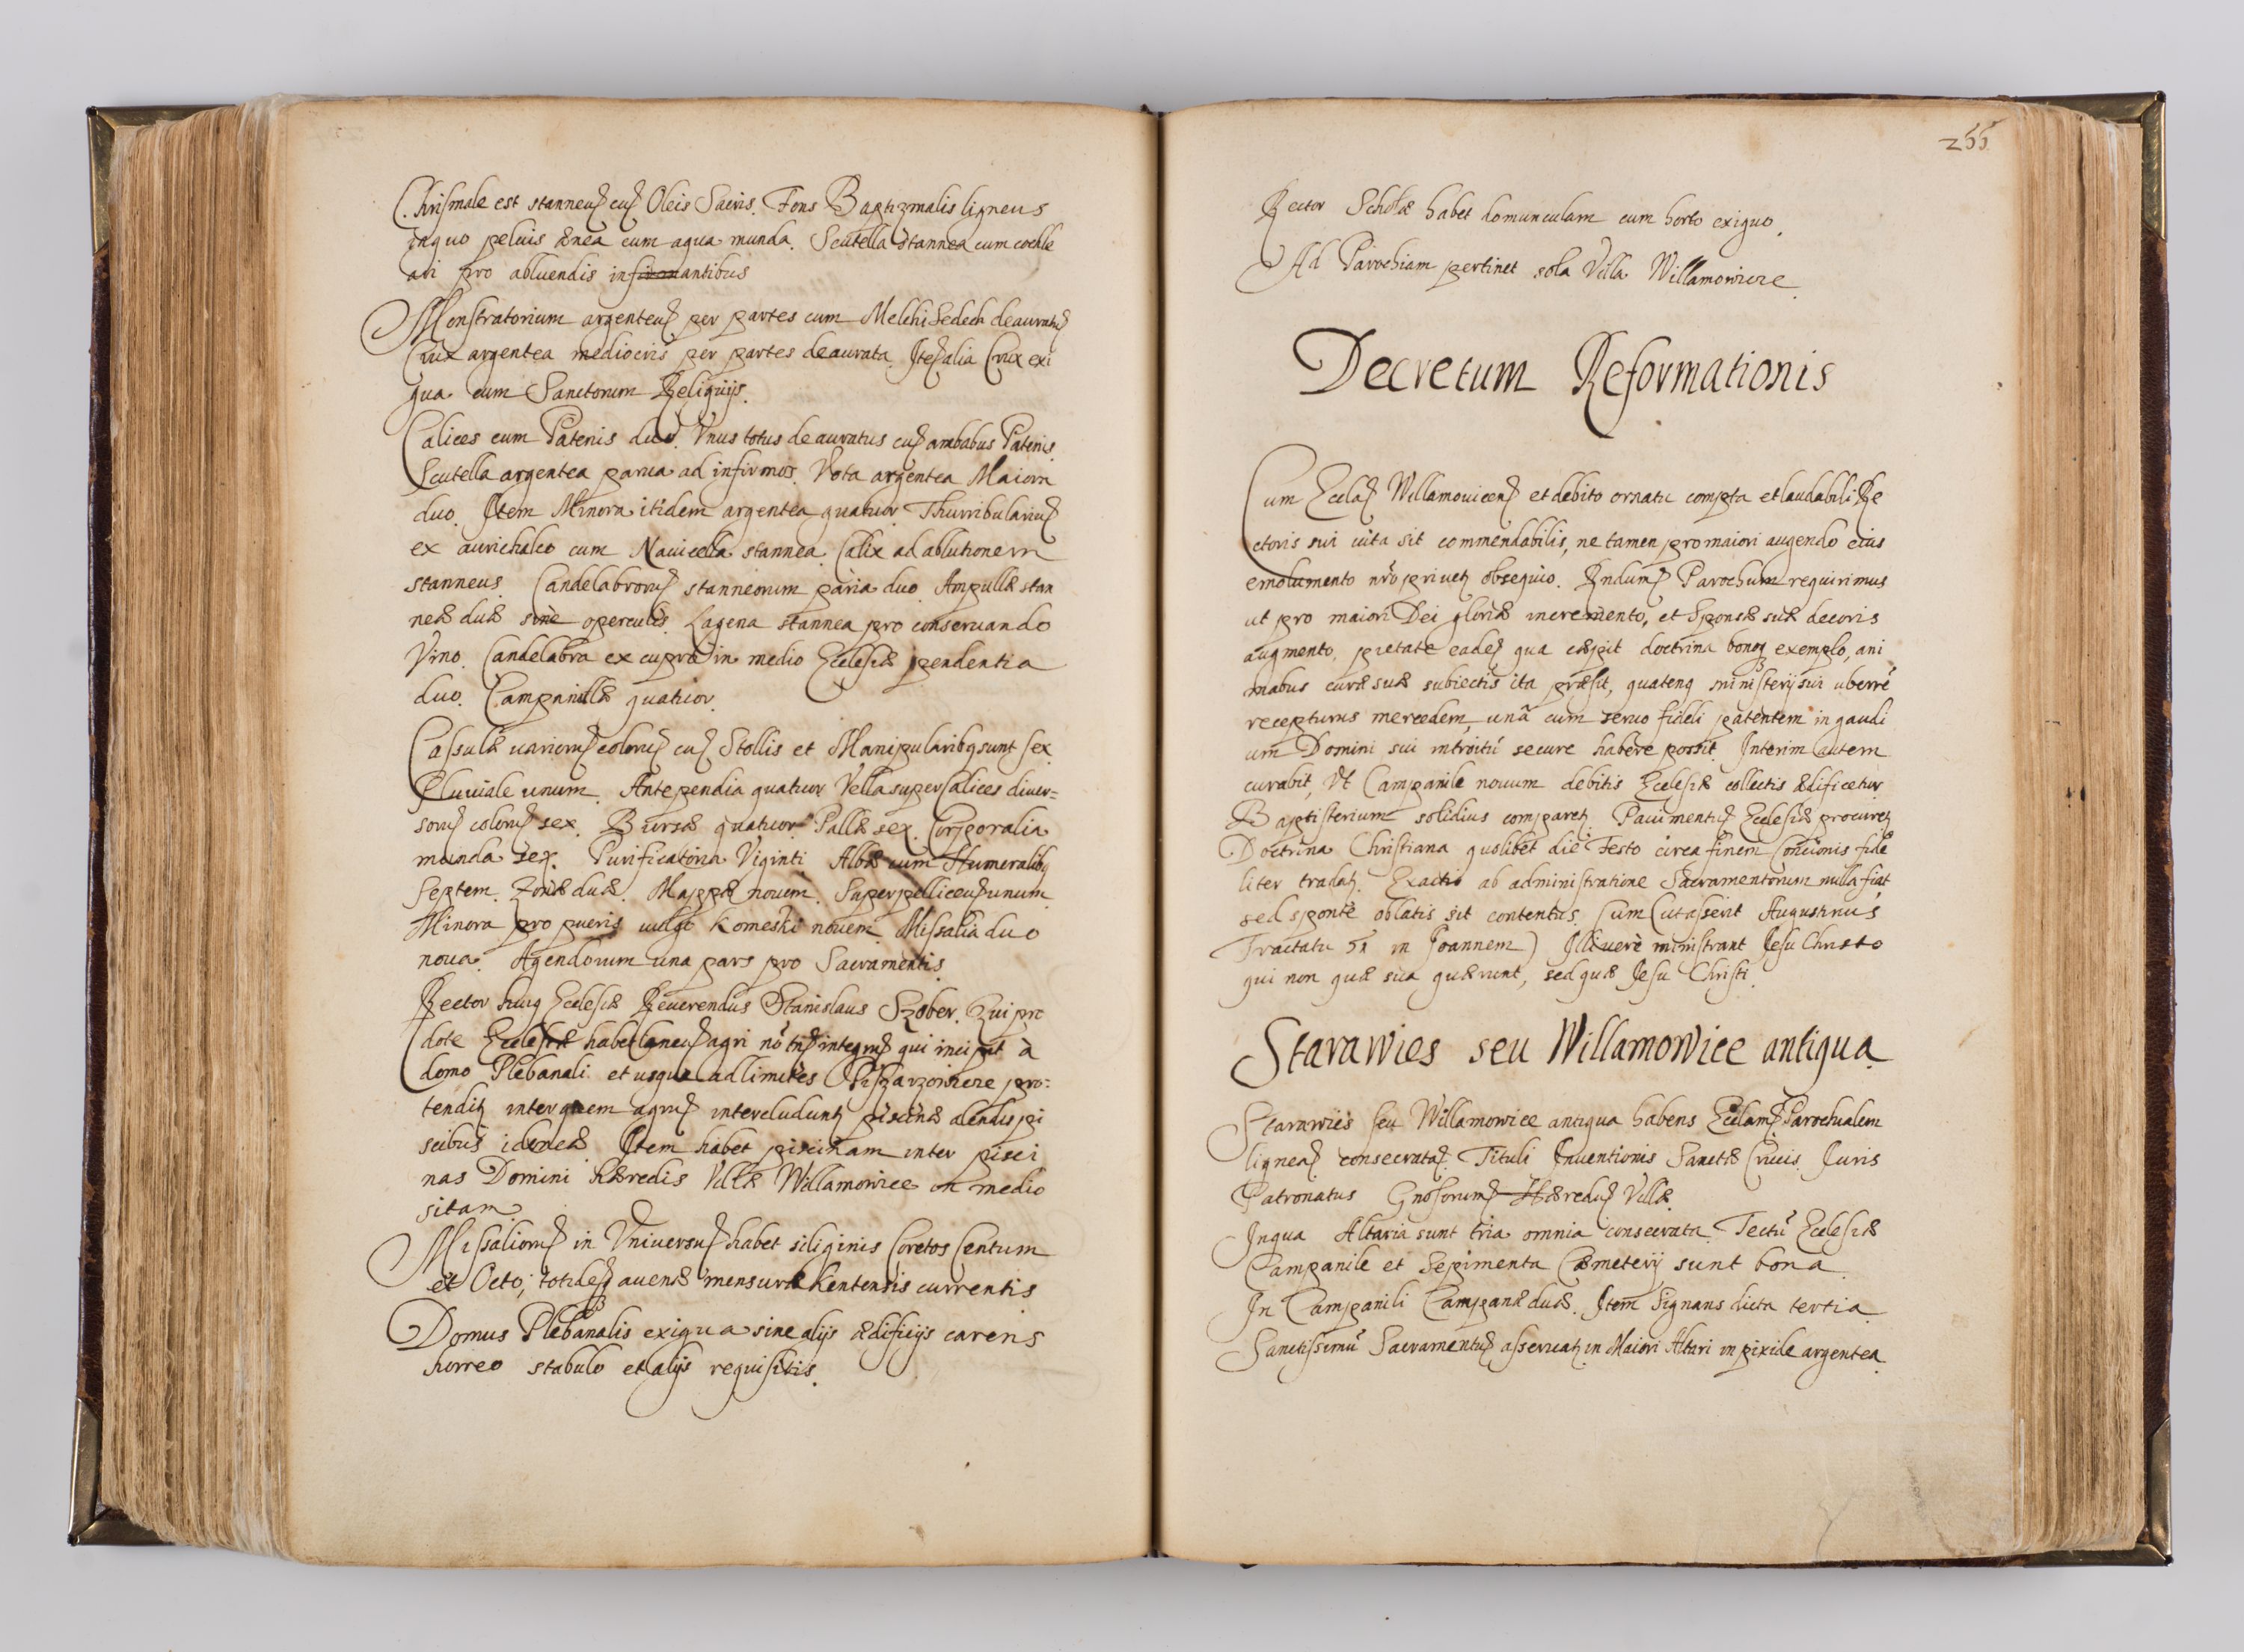 Chrismale est stanneuʒ cuʒ Oleis Sacris. Fons Baptizmalis ligneus
in quo peluis ænea cum aqua munda. Scutella stannea cum cochle
ari pro abluendis infirmantibus
Monstratorium argenteuʒ per partes cum Melchisedech deauratuʒ
Crux argentea mediocris per partes deaurata. Iteʒ alia Crux exi
gua cum Sanctorum Reliquijs.
Calices cum Patenis duo. Vnus totus deauratus cuʒ ambabus Patenis.
Scutella argentea parua ad infirmos. Vota argentea Maiora
duo. Item Minora itidem argentea quatuor. Thurribulariuʒ
ex aurichalco cum Nauicella stannea. Calix ad ablutionem
stanneus. Candelabroruʒ stanneorum paria duo. Ampullæ stan
neæ duæ sine operculis. Lagena stannea pro conseruando
Vino. Candelabra ex cupro in medio Ecclesiæ pendentia
duo. Campanillæ quatuor.
Cassulæ varioruʒ coloruʒ cuʒ Stollis et Manipularibq sunt sex.
Pluuiale unum. Antependia quatuor. Vella super Calices diuer=
soruʒ coloruʒ sex. Bursæ quatuor Pallæ sex. Corporalia
munda sex. Purificatoria Viginti. Albæ cum Humeralibq
Septem. Zonæ duæ. Mappæ nouem. Superpelliceuʒ unum.
Minora pro pueris vulgo Komeski nouem. Missalia duo
noua. Agendorum una pars pro Sacramentis.
Rector huiq Ecclesiæ Reuerendus Stanislaus Szober. Qui pro
dote Ecclesiæ habet laneuʒ agri nō tñ integruʒ qui incipit à
domo Plebanali et usque ad limites Pisarzowice pro=
tenditʒ inter quem agruʒ intercluduntʒ piscinæ alendis pi
scibus idoneæ. Item habet piscinam inter pisci
nas Domini hæredis Villæ Willamowice in medio
sitam.
Missalioruʒ in Vniuersuʒ habet siliginis Coretos Centum
et Octo, totideʒ auenæ mensuræ Kentensis currentis
Domus Plebanalis exigua sine alijs ædificijs carens
horreo stabulo et alijs requisitis.
255
Rector Scholæ habet domunculam cum horto exiguo.
Ad Parochiam pertinet sola Villa Willamowice.
Decretum Reformationis
Cum Ecclaʒ Willamouicenʒ et debito ornatu compta et laudabili Re
ctoris sui vita sit commendabilis, ne tamen pro maiori augendo eius
emolumento nr̃o priuetʒ obsequio. Rndumʒ Parochum requirimus
ut pro maiori Dei gloriæ incremento, et Sponsæ suæ decoris
augmento, pietate eadeʒ qua cæpit doctrina bonoqʒ exemplo, ani
mabus curæ suæ subiectis ita præsit, quatenq ministerij sui uberrē
recepturus mercedem, unã cum seruo fideli patentem in gaudi
um Domini sui introitū secure habere possit. Interim autem
curabit, Vt Campanile nouum debitis Ecclesiæ collectis ædificetur
Baptisterium solidius comparetʒ. Pauimentuʒ Ecclesiæ procuretʒ
Doctrina Christiana quolibet die Festo circa finem Concionis fide
liter tradatʒ. Exactio ab administratione Sacramentorum nulla fiat
sed sponte oblatis sit contentus, cum (ut asserit Augustinus
Tractatu 51 in Joannem) Illi verè ministrant Jesu Christo
qui non quæ sua quærunt, sed quæ Jesu Christi.
Starawies seu Willamowice antiqua.
Starawies seu Willamowice antiqua habens Ecclamʒ Parochialem
ligneaʒ consecrataʒ. Tituli Inuentionis Sanctæ Crucis. Iuris
Patronatus Gnosorumʒ Hæreduʒ Villæ.
In qua Altaria sunt tria omnia consecrata. Tectū Ecclesiæ
Campanile et Sepimenta Cæmeterij sunt bona.
In Campanili Campanæ duæ. Item Signans dicta tertia.
Sanctissimū Sacramentuʒ asseruatʒ in Maiori Altari in pixide argentea.